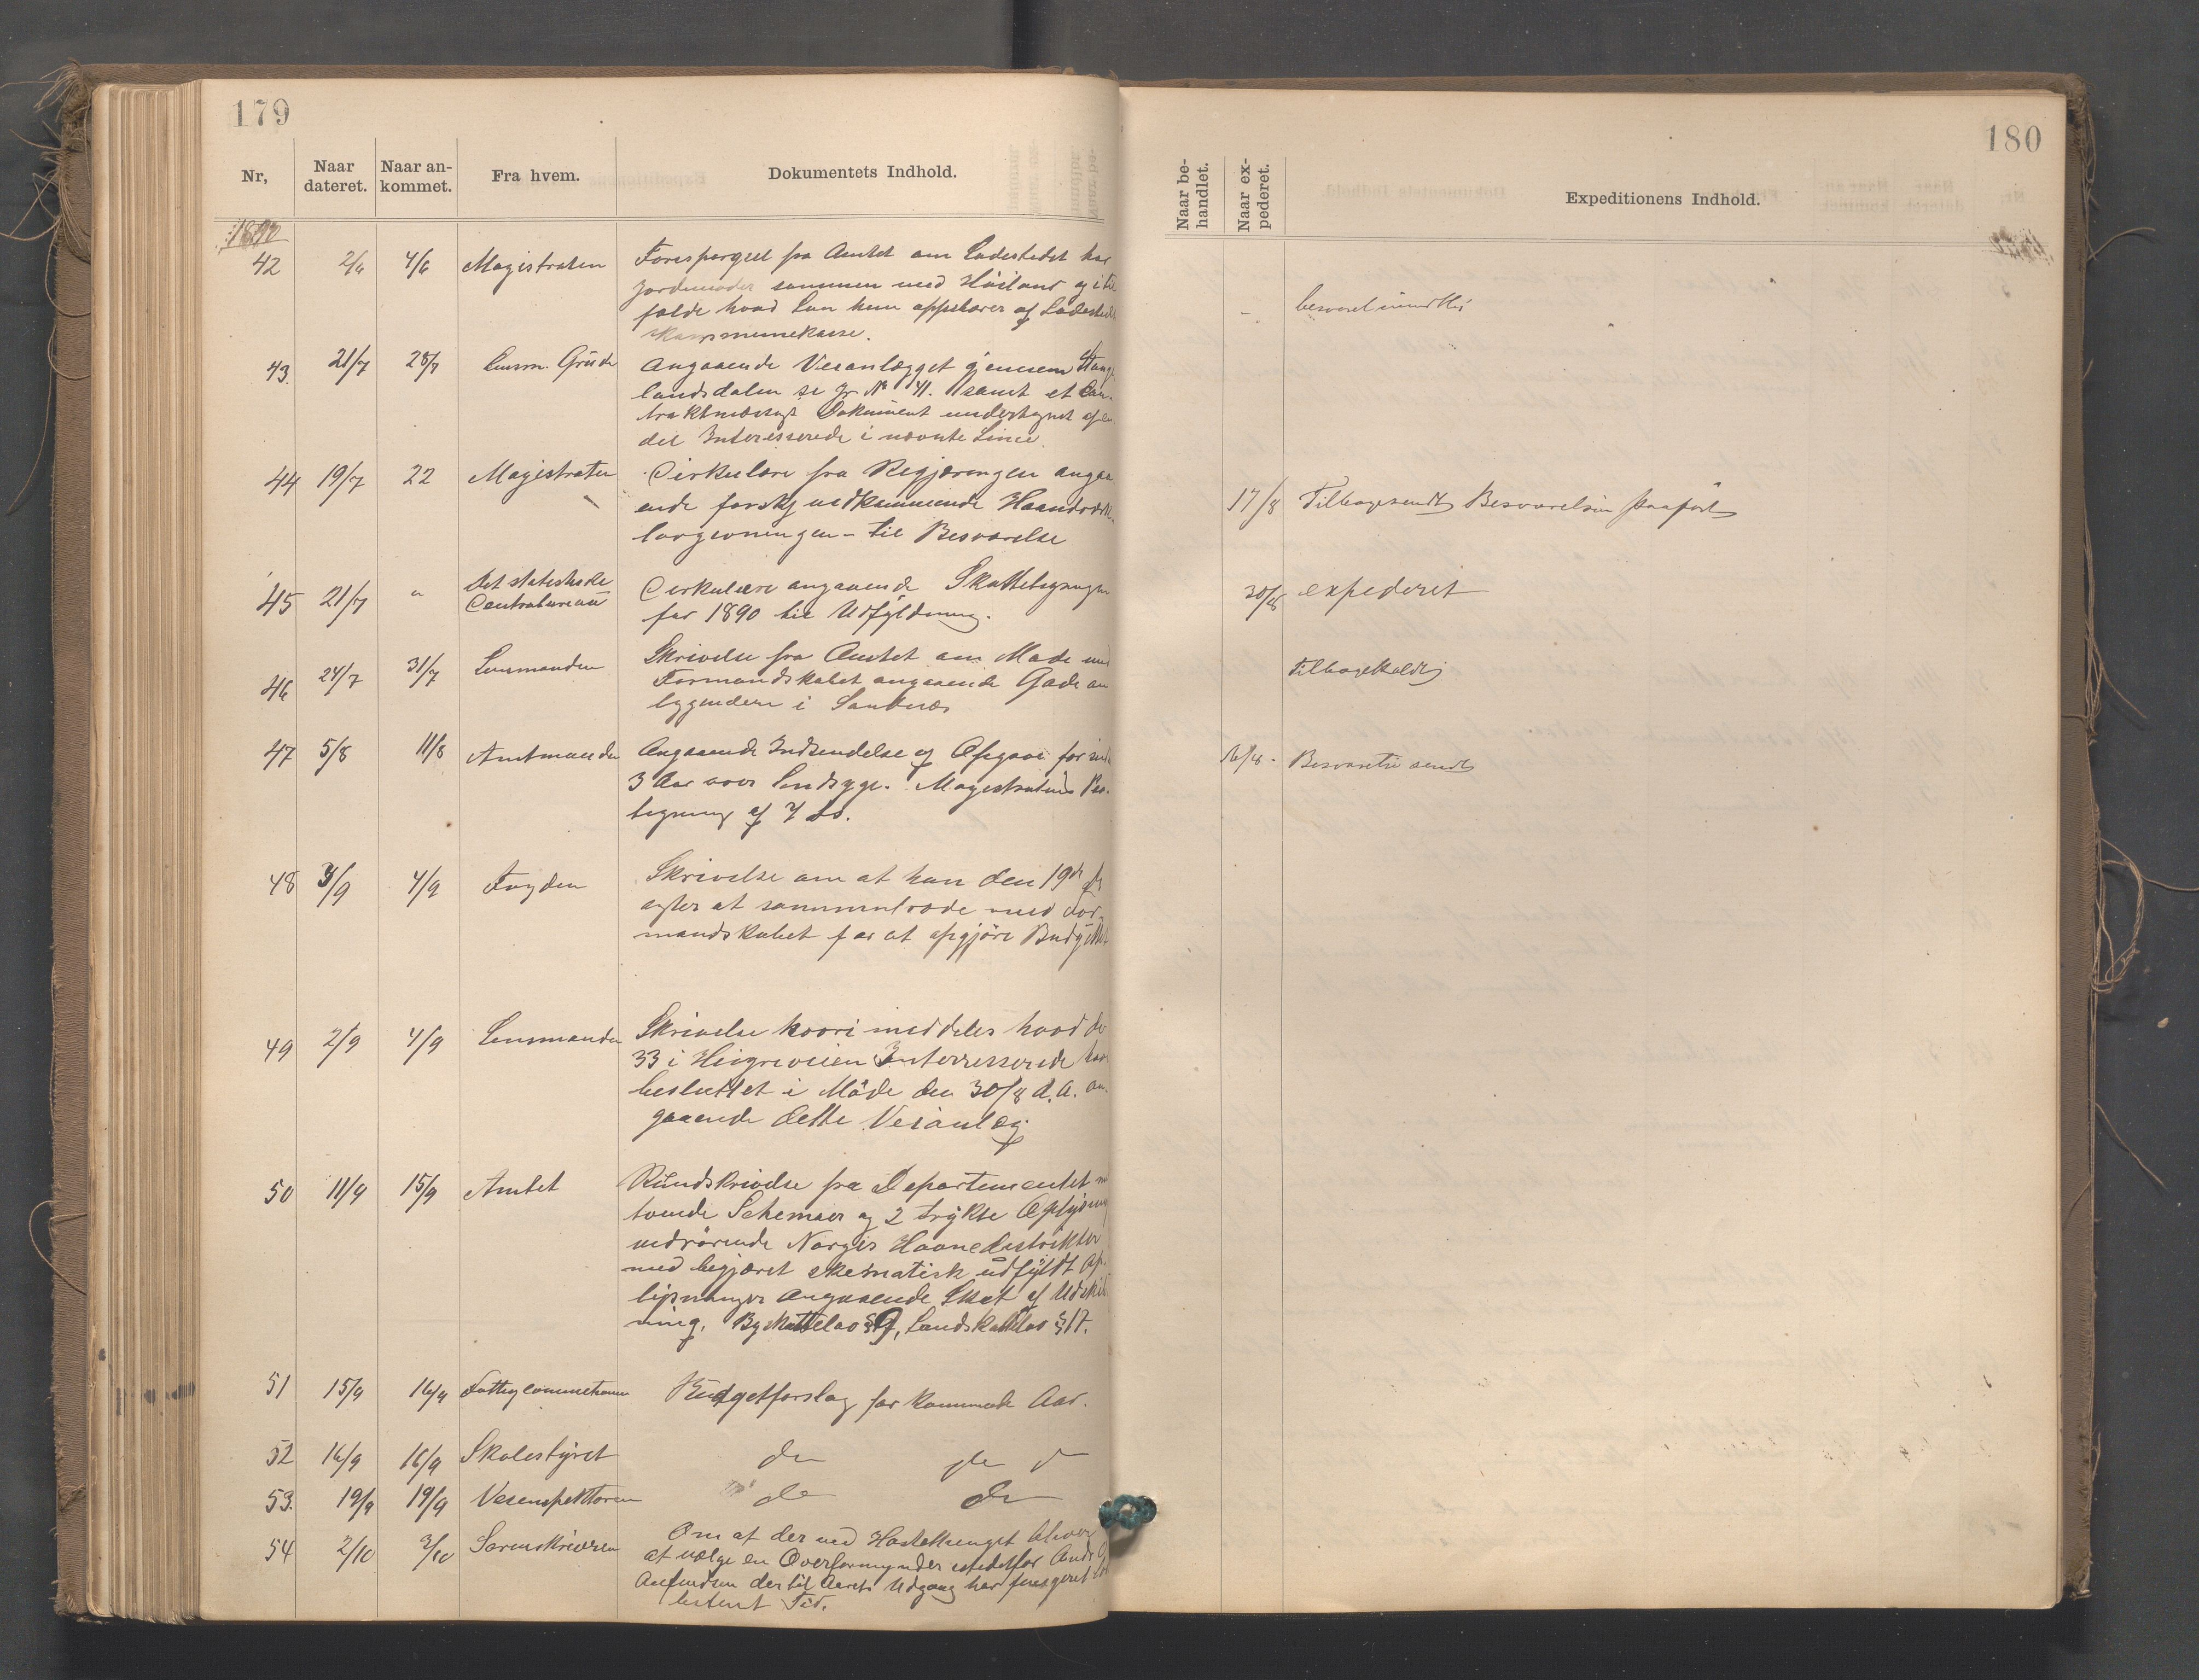 179
Nr,
Naar dateret.
Naar ankommet.
Fra hvem.
Dokumentets Indhold.
1890
42 2/6 4/6 Magistraten Forespørgsel fra Amtet om Ladestedet har
Jordmoder sammen med Höiland og i
fald hvad Løn hun oppebærer af Ladestedets
kommunekasse.
43. 21/7 28/7 Lensm. Grude Angaaende Veianlægget gjennem Stange
landsdalen se Jr № 41. samt et Con-
traktmæssigt Dokument undertegnet af en
del Interesserede i nævnte Linie
44 19/7 22 Magistraten Cirkulære fra Regjeringen angaa
ende forskj vedkommende Haandværk
lovgivningen - til Besvarelse
45 21/7 " Det statistiske
Centralbureau Cirkulære angaaende Skatteligningen
for 1890 til Udfyldning.
46 24/7 31/7 Lensmanden Skrivelse fra Amtet om Møde med
Formandskabet angaaende Gade an
læggender i Sandnæs
47 5/8 11/8 Amtmanden Angaaende Indsendelse af Opgave for sidste
3 Aar over Sindsyge. Magistratens Paa-
tegning af 7 ds.
48 3/9 4/9 Fogden Skrivelse om at han den 19de ds
agter at sammentræde med For-
mandskabet for at opgjöre Budgettet
49 2/9 4/9 Lensmanden Skrivelse hvori meddeles hvad de
33 i Veien Interresserede har
besluttet i Möde den 30/8 d.A. an-
gaaende dette Veianlæg
50 11/9 15/9 Amtet Rundskrivelse fra Departementet
tvende Schemaer og 2 trykte Oplysning
vedrörende Norges Havnedistrikter
med begjæret skematisk udfyldt Op-
lysninger angaaende Skat af Udskil
ning, Byskattelov § 9, Landskattelov § 17.
51 15/9 16/9 Fattigcommissionen Budgetforslag for kommende Aar.
52 16/9 16/9 Skolestyret do do
53. 19/9 19/9 Veiinspektören do do
54 2/10 3/10 Sorenskriveren Om at der ved Höstethinget bliver
at vælge en Overformynder istedetfor
der til Aarets Udgang har fungeret
bestemt Tid.
180
Naar behandlet.
Naar expederet.
Expeditionens Indhold.
- besvaret mundtlig
17/8 Tilbagesendt Besvarelsen paaført
30/8 expederet
Tilbagekaldt
16/8 - Besvarelse sendt